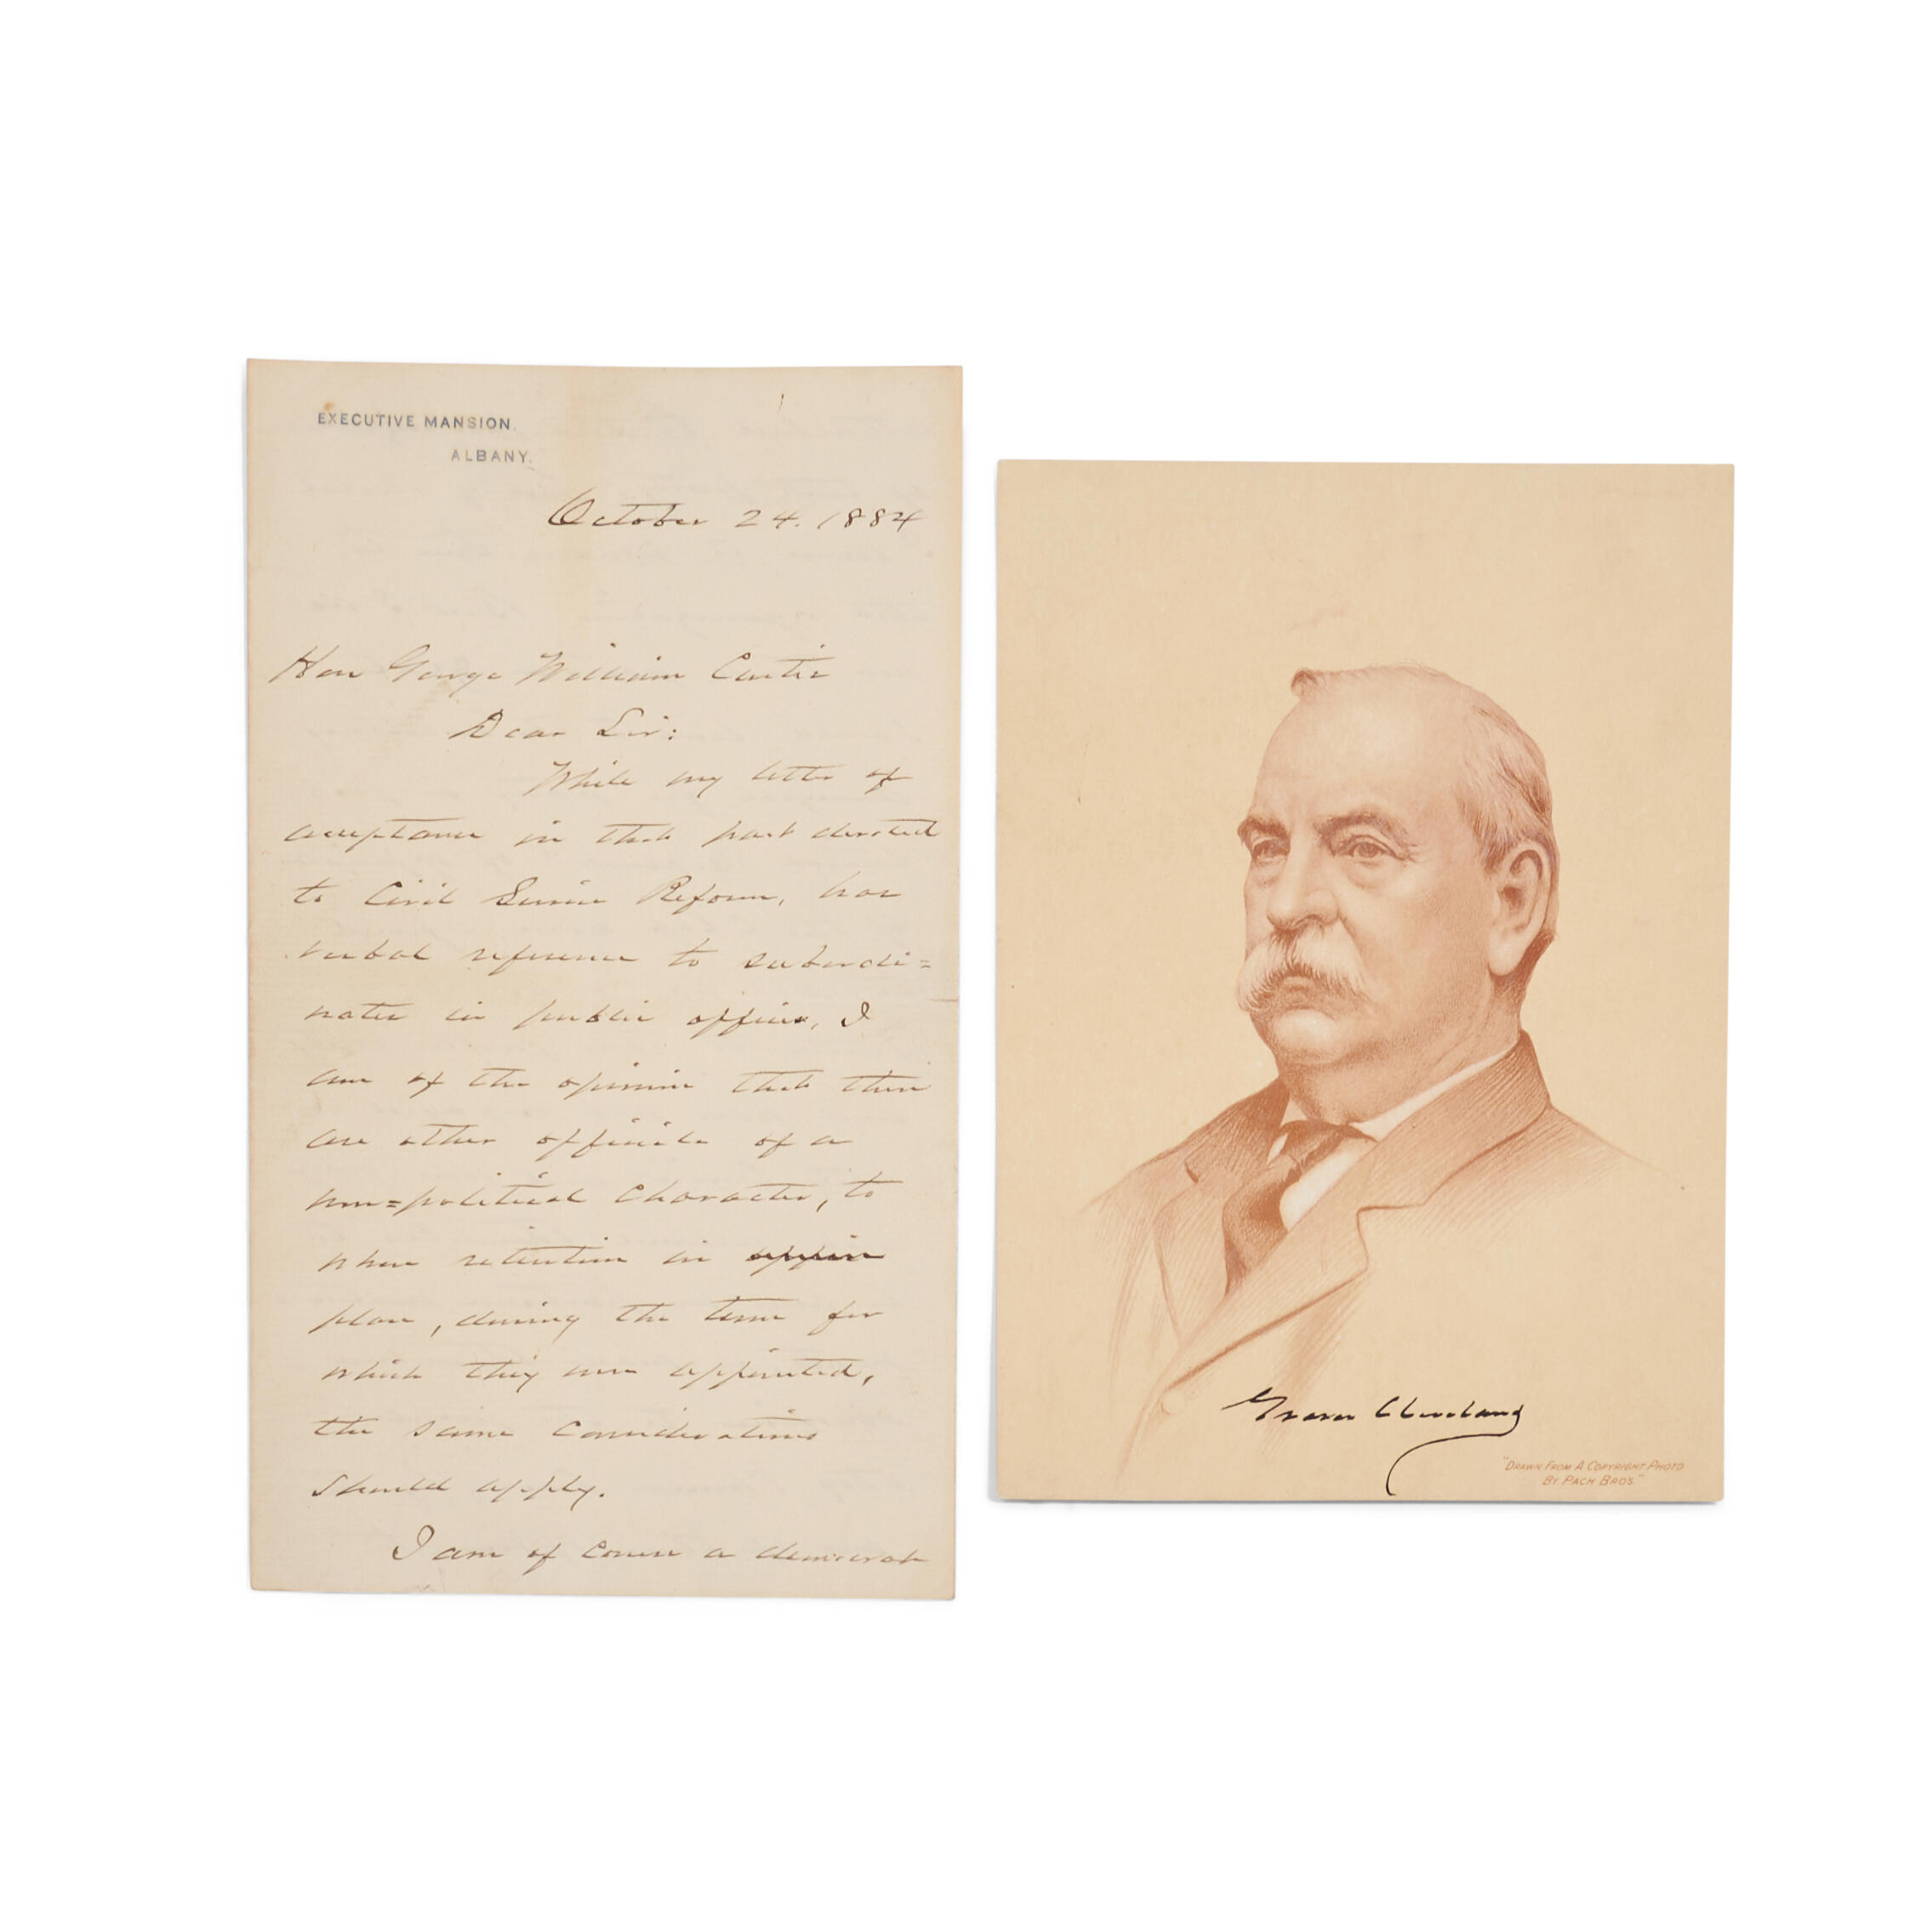 EXECUTIVE MANSION.
ALBANY.
October 24. 1884
Hon George William Curtis
Dear Sir:
While my letter of
acceptance in that part devoted
to Civil Service Reform, has
verbal reference to subordi=
nates in public office, I
am of the opinion that there
are other officials of a
non=political character, to
whose retention in
place, during the time for
which they were appointed,
the same considerations
should apply.
I am of course a democrat
Grover Cleveland
"DRAWN FROM A COPYRIGHT PHOTO
BY PACH BROS."